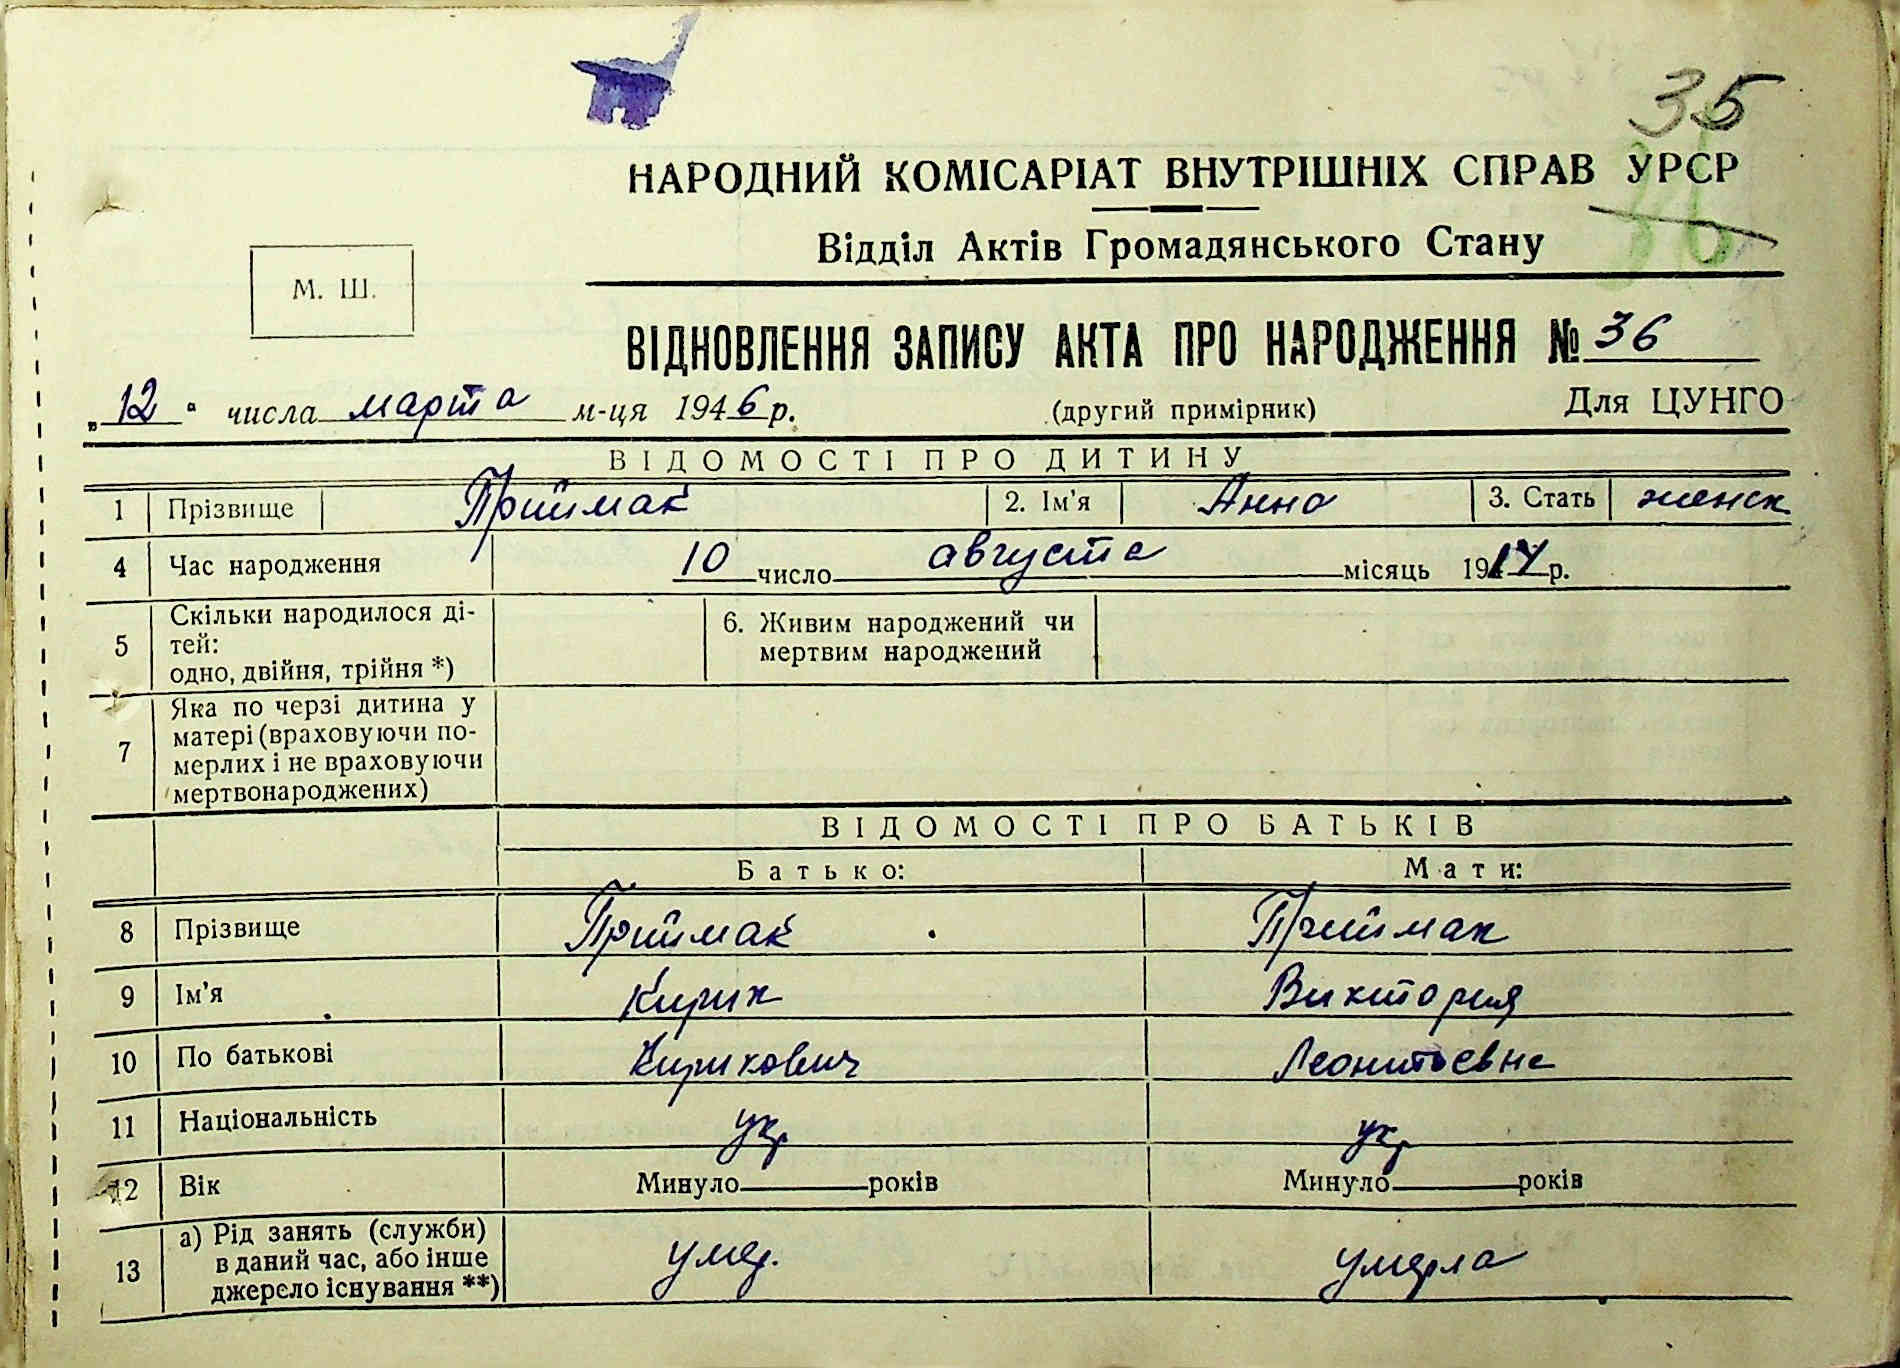 35
36
НАРОДНИЙ КОМІСАРІАТ ВНУТРІШНІХ СПРАВ УРСР
Відділ Актів Громадянського Стану
М. Ш.
ВІДНОВЛЕННЯ ЗАПИСУ АКТА ПРО НАРОДЖЕННЯ № 36
„12" числа марта м-ця 1946 р. (другий примірник) Для ЦУНГО
ВІДОМОСТІ ПРО ДИТИНУ
1 Прізвище Приймак 2. Ім'я Анна 3. Стать женск
4 Час народження 10 число августа місяць 1914 р.
5 Скільки народилося ді-
тей:
одно, двійня, трійня *)
6. Живим народжений чи
мертвим народжений
7 Яка по черзі дитина у
матері (враховуючи по-
мерлих і не враховуючи
мертвонароджених)
ВІДОМОСТІ ПРО БАТЬКІВ
Батько: Мати:
8 Прізвище Приймак Приймак
9 Ім'я Кирик Виктория
10 По батькові Кирикович Леонтьевна
11 Національність укр укр
12 Вік Минуло років Минуло років
13 а) Рід занять (служби)
в даний час, або інше
джерело існування **)
умер. умерла